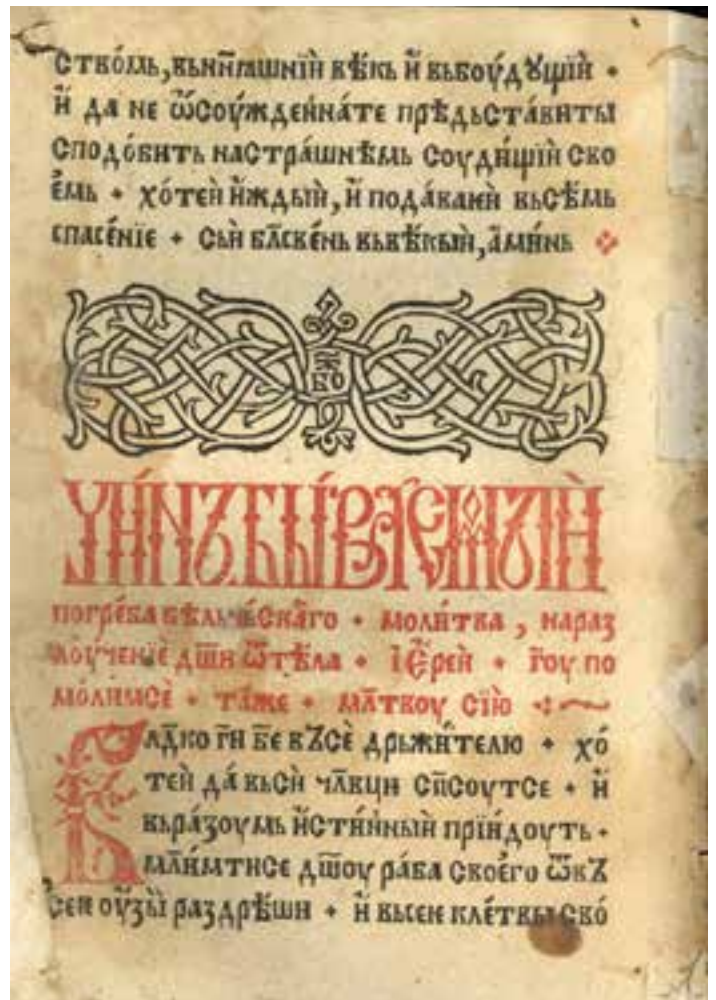 ство́мь, вьнн꙯ꙗшнїй вѣ́кь и҆ вьбоу́дꙋщїй ·
и҆ да не ѿсоу́жденна́те прѣ́дьста́вити
сподо́бить настра́шнѣмь соуди́щїй сво
е҆́мь · хо́тей и҆́ждый, и҆ пода́ваей вьсѣ̑мь
спасе́нїе · сый бл҃све́нь вьвѣ́кый, а҆ми́нь
бо
чи́нъ бы́ваемый
погре́ба бѣльчьскаго · моли́тва, нараз
лоуче́нїе дш҃и ѿтѣ́ла · і҆ере́й · гоу҃ по
мо́лимсе · та́же · мл҃твоу сїю
вл҃дко ги҃ бе҃ въсѐ дрьжи́телю · хо́
тей да́ вьси чл҃вци сп҃соутсе · и҆
вьра́зоумь и҆́стинный прїи́доуть ·
мл҃имтисе дш҃оу ра́ба своего ѿвъ
сеи оу҆́зы раздрѣ́ши · и҆ высеи кле́твы сво́